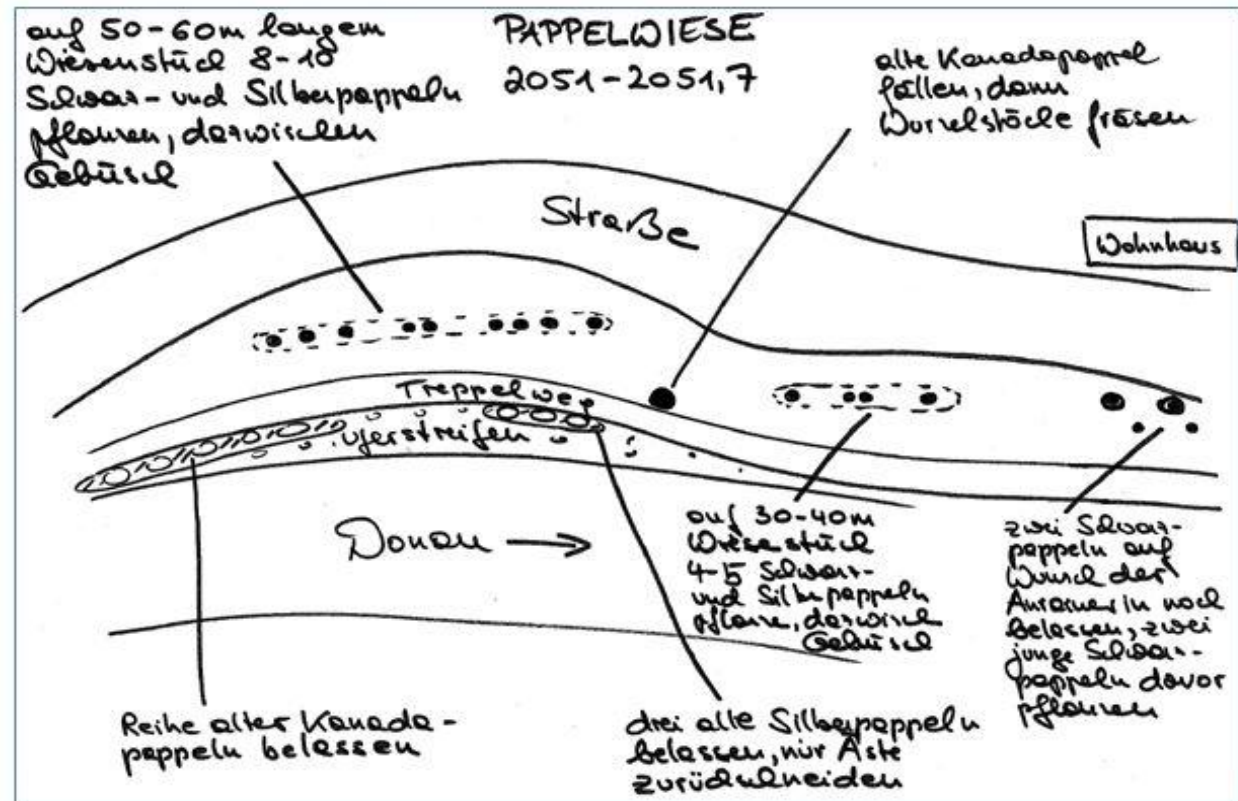 PAPPELWIESE
2051-2051,7
auf 50-60m langem
Wiesenstück 8-10
Schwarz- und Silberpappeln
pflanzen, dazwischen
Gebüsch
alte Kanadapappel
fällen, dann
Wurzelstöcke fräsen
Straße
Wohnhaus
Treppelweg
Uferstreifen
Donau
auf 30-40m
Wiesenstück
4-5 Schwarz-
und Silberpappeln
pflanzen, dazwisch
Gebüsch
zwei Schwarz-
pappeln auf
Wunsch der
Anrainerin noch
belassen, zwei
junge Schwarz-
pappeln davor
pflanzen
Reihe alter Kanada-
pappeln belassen
drei alte Silberpappeln
belassen, nur Äste
zurückschneiden